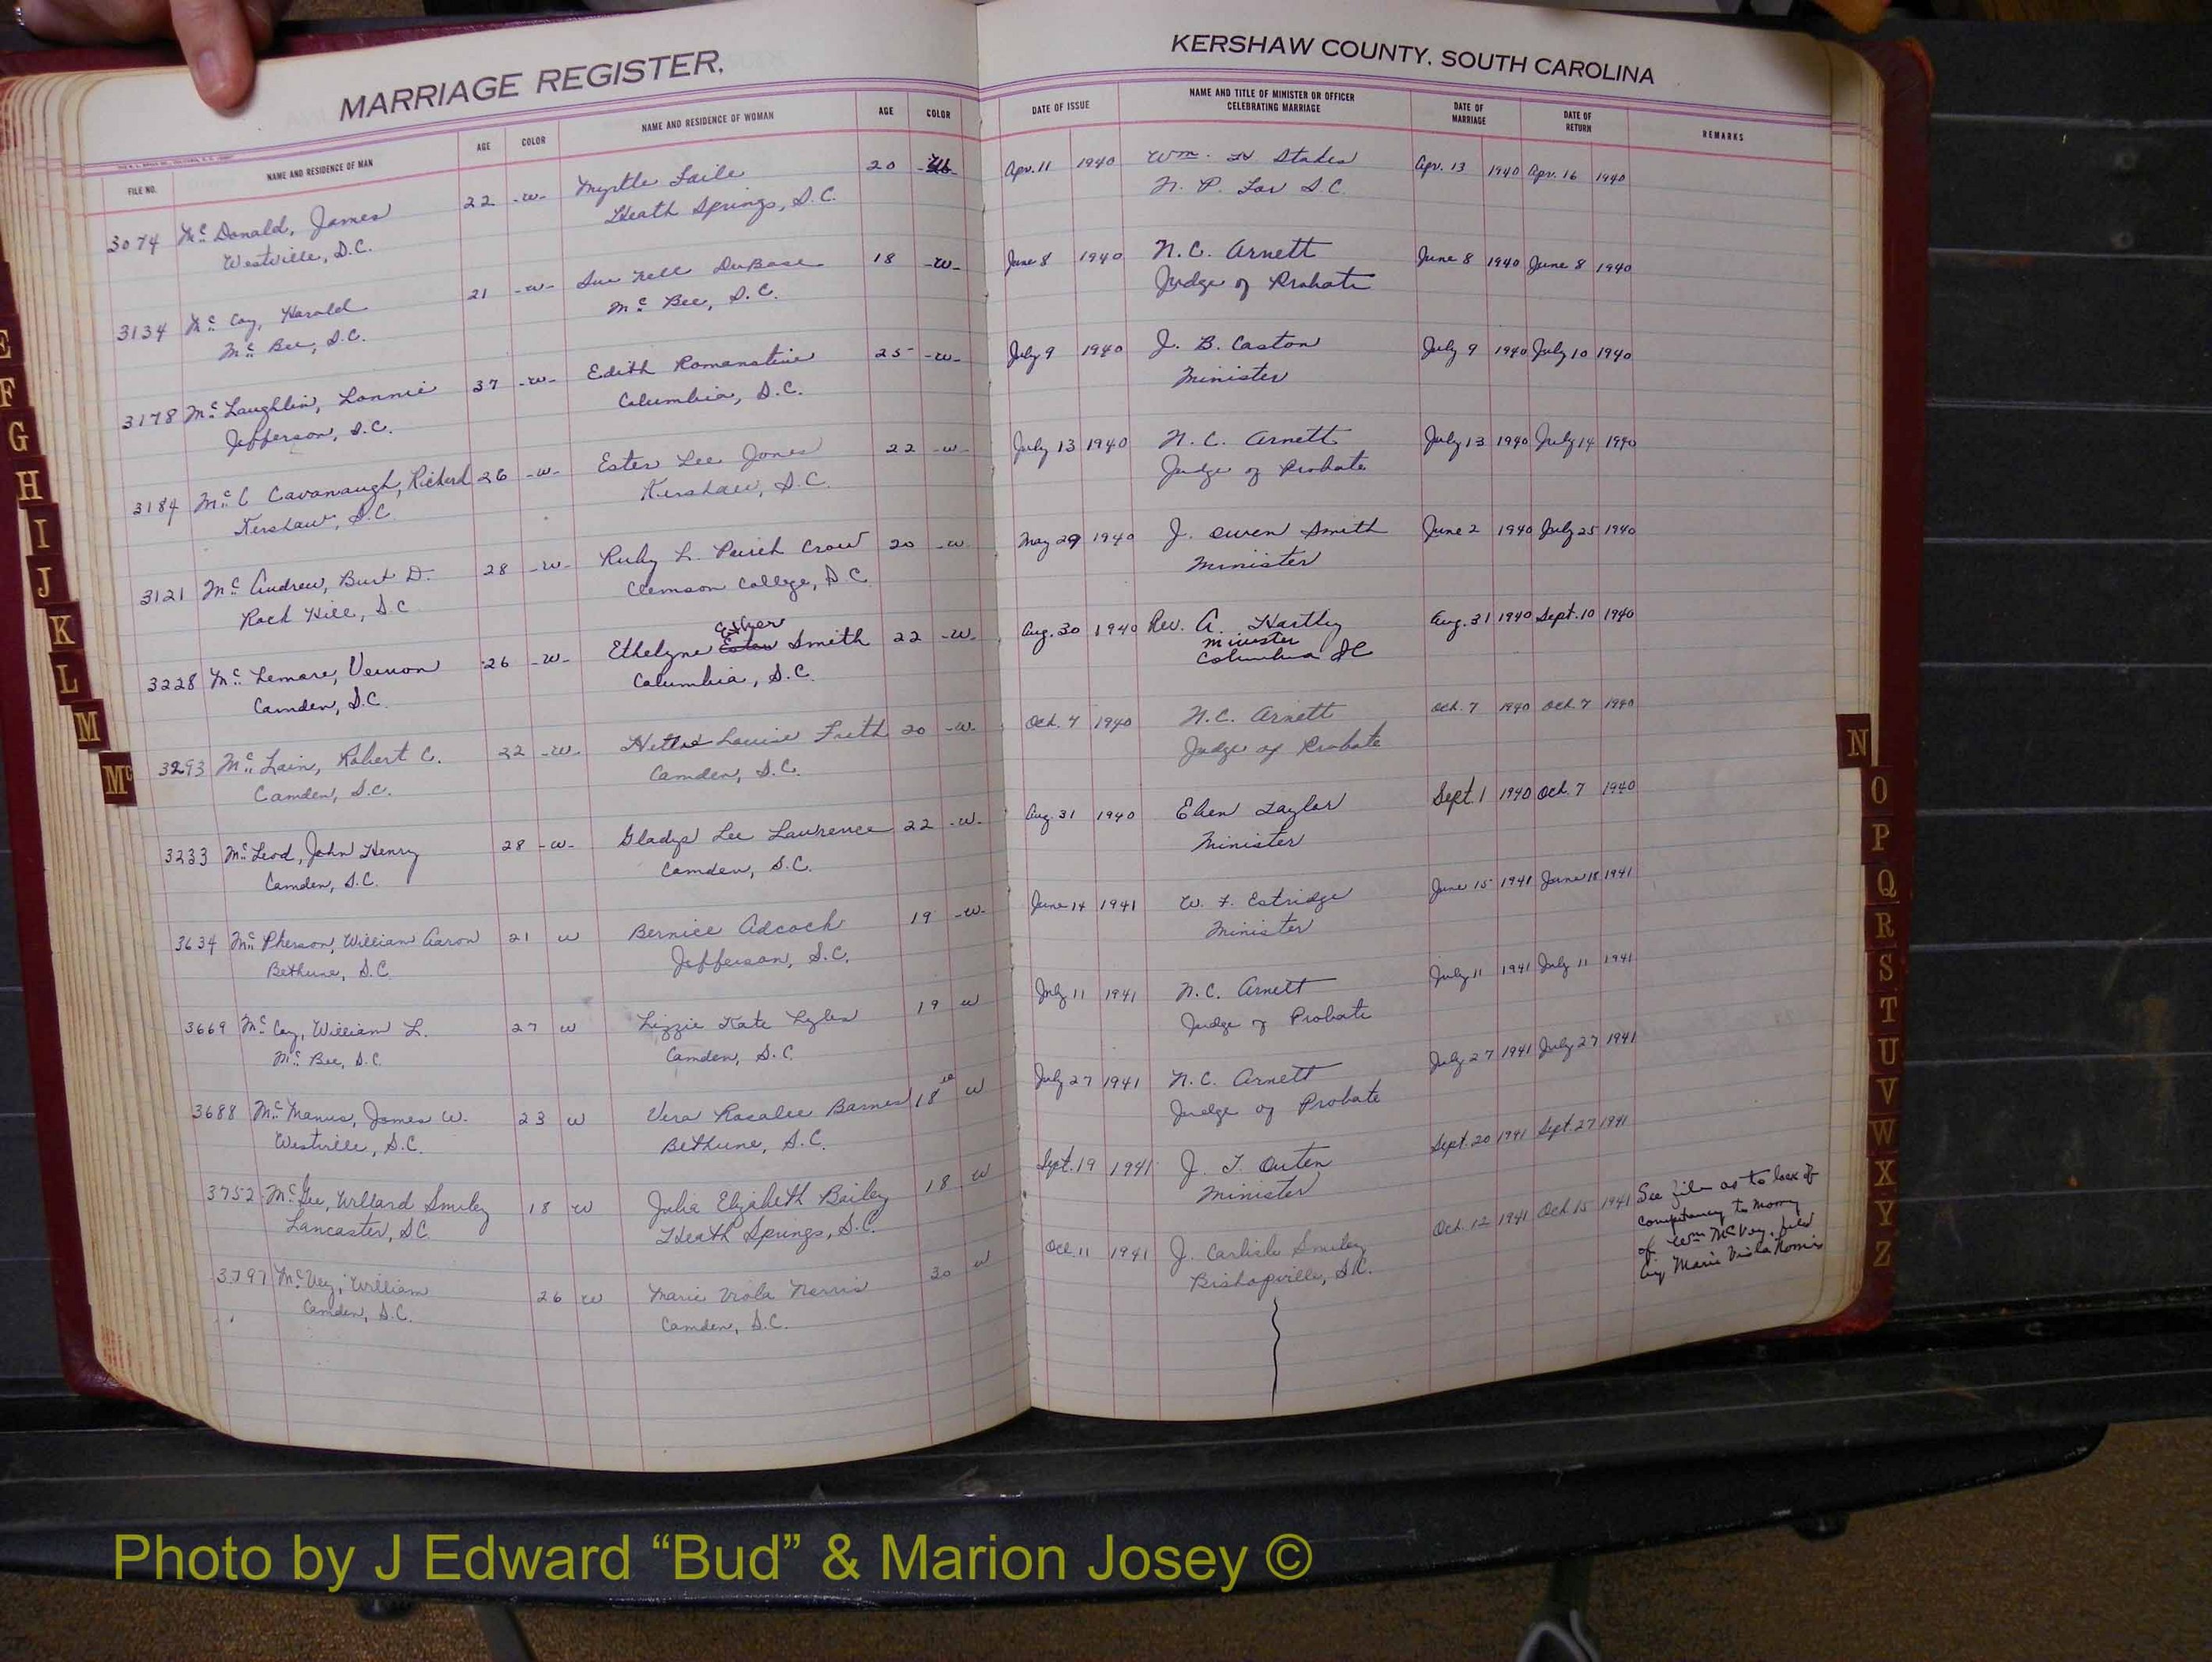 MARRIAGE REGISTER,
KERSHAW COUNTY, SOUTH CAROLINA
FILE NO. NAME AND RESIDENCE OF MAN AGE COLOR NAME AND RESIDENCE OF WOMAN AGE COLOR DATE OF ISSUE NAME AND TITLE OF MINISTER OR OFFICER CELEBRATING MARRIAGE DATE OF MARRIAGE DATE OF RETURN REMARKS
3074 Mc Donald, James 22 -w- Myrtle Faile 20 Apr. 11 1940 Wm. H Stakes Apr. 13 1940 Apr. 16 1940
Westville, S.C. Heath Springs, S.C. N. P. For S.C.
3134 Mc Coy, Harold 21 -w- Sue Nell DuBose 18 -w- June 8 1940 N.C. Arnett June 8 1940 June 8 1940
Mc Bee, S.C. Mc Bee, S.C. Judge of Probate
3178 Mc Laughlin, Lonnie 37 -w- Edith Romanstine 25 -w- July 9 1940 J. B. Caston July 9 1940 July 10 1940
Jefferson, S.C. Columbia, S.C. Minister
3184 Mc C Cavanaugh, Richard 26 -w- Ester Lee Jones 22 -w- July 13 1940 N. C. Arnett July 13 1940 July 14 1940
Kershaw, S.C. Kershaw, S.C. Judge of Probate
3121 Mc Andrew, Burt D. 28 -w- Ruby L. Crow 20 -w May 29 1940 J. Owen Smith June 2 1940 July 25 1940
Rock Hill, S.C Clemson College, S.C. Minister
3228 Mc Lemore, Vernon 26 -w- Ethelyne Esther Smith 22 -w- Aug. 30 1940 Rev. A. Hartley Aug. 31 1940 Sept. 10 1940
Camden, S.C. Columbia, S.C. Minister
Columbia SC
3293 Mc Lain, Robert C. 22 -w- Hettie Louise Frith 20 -w- Oct. 7 1940 N.C. Arnett Oct. 7 1940 Oct. 7 1940
Camden, S.C. Camden, S.C. Judge of Probate
3233 Mc Leod, John Henry 28 -w- Gladys Lee Lawrence 22 -w- Aug. 31 1940 Eben Taylor Sept. 1 1940 Oct. 7 1940
Camden, S.C. Camden, S.C. Minister
3634 Mc Pherson, William Aaron 21 w Bernice Adcock 19 -w- June 14 1941 W. F. Estridge June 15 1941 June 18 1941
Bethune, S.C. Jefferson, S.C. Minister
3669 Mc Coy, William L. 27 w Lizzie Kate Lyles 19 w July 11 1941 N.C. Arnett July 11 1941 July 11 1941
Mc Bee, S.C. Camden, S.C. Judge of Probate
3688 Mc Manus, James W. 23 w Vera Rosalee Barnes 18 w July 27 1941 N.C. Arnett July 27 1941 July 27 1941
Westville, S.C. Bethune, S.C. Judge of Probate
3752 Mc Gee, Willard Smiley 18 w Julia Elizabeth Bailey 18 w Sept. 19 1941 J. T. Outen Sept. 20 1941 Sept. 27 1941
Lancaster, SC Heath Springs, S.C. Minister
3797 Mc Vey, William 26 w Marie Viola Norris 30 w Oct. 11 1941 J. Carlisle Smiley Oct. 12 1941 Oct. 15 1941 See file as to lack of
Camden, S.C. Camden, S.C. Bishopville, S.C. competency to marry
of Wm McVey, filed
by Marie Viola Norris
E
F
G
H
I
J
K
L
M
Mc
N
O
P
Q
R
S
T
U
V
W
X
Y
Z
Photo by J Edward “Bud” & Marion Josey ©